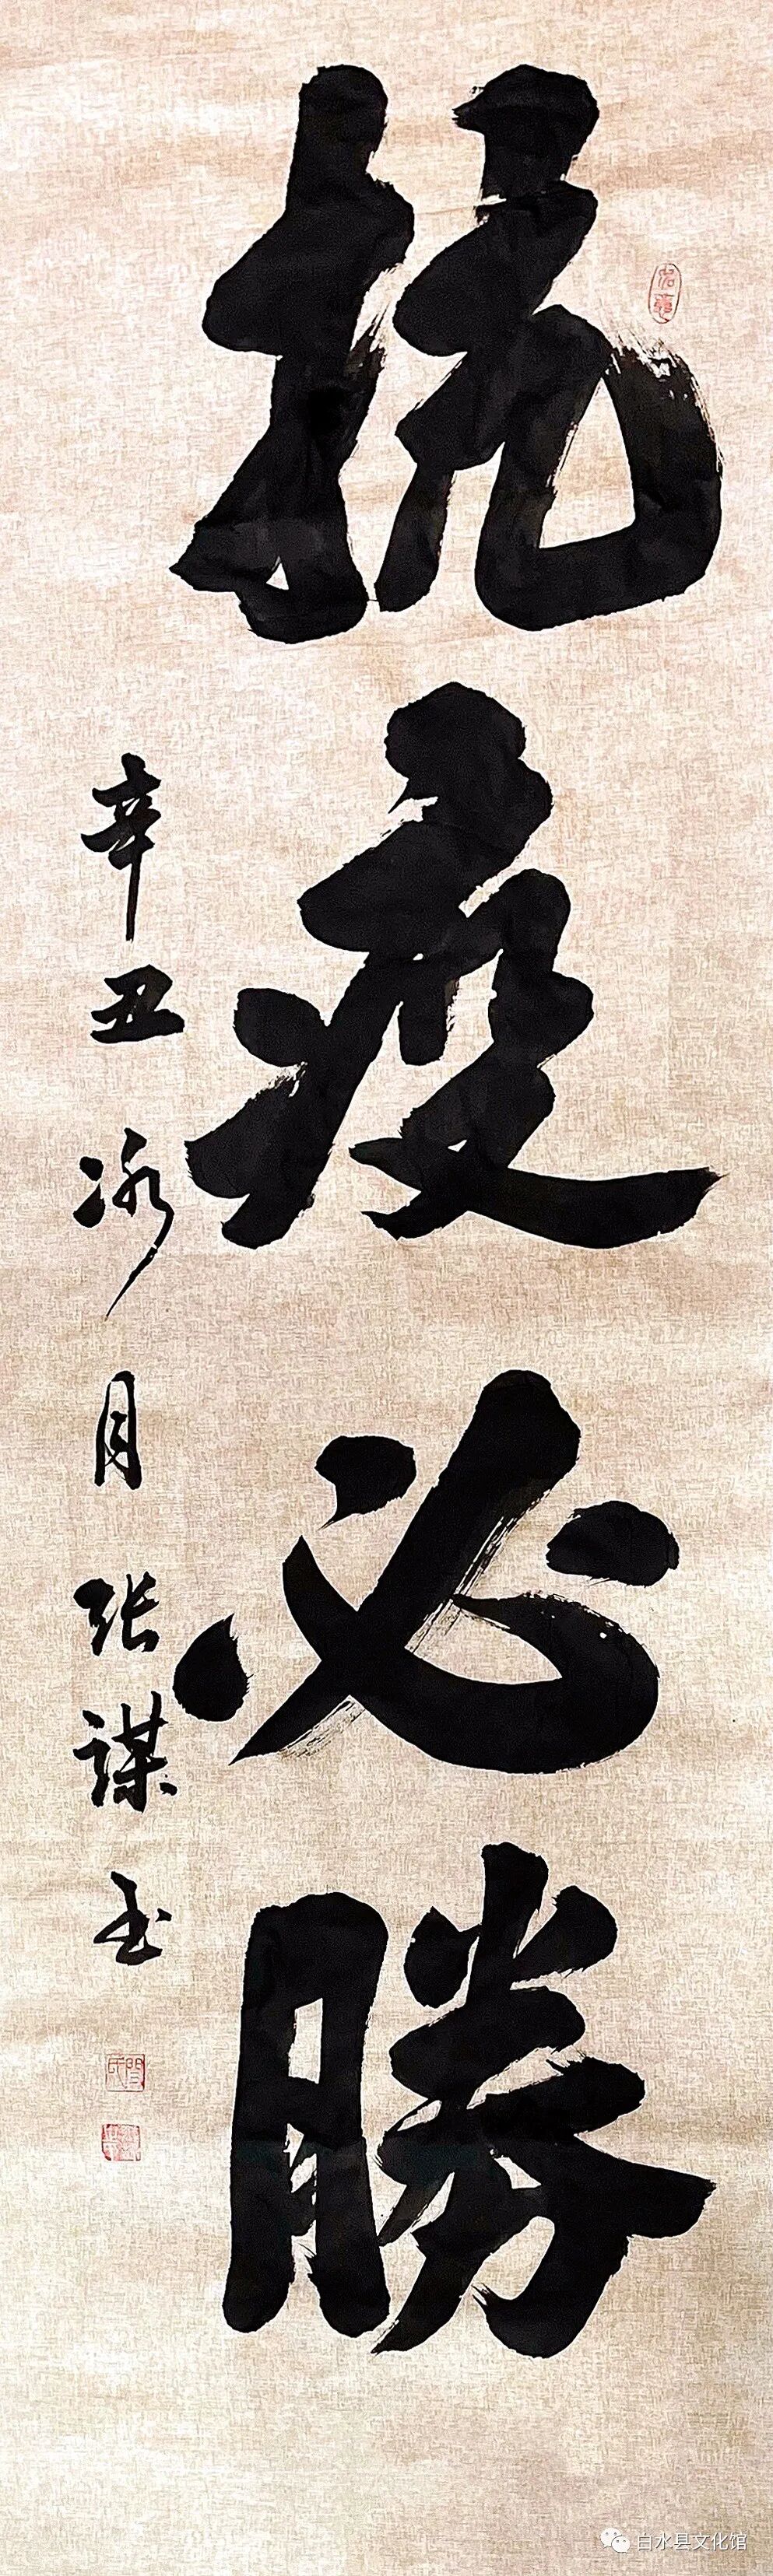 抗疫必勝
辛丑冰月张谋玉
白水县文化馆